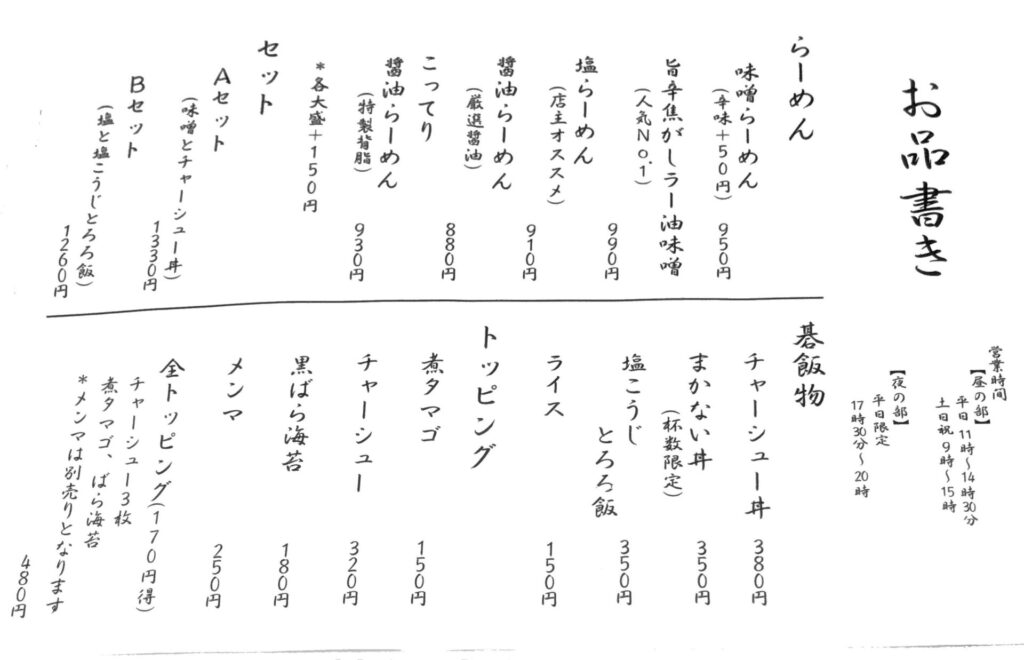 お品書き
営業時間
【昼の部】
平日 11時～14時30分
土日祝 9時～15時
【夜の部】
平日限定
17時30分～20時
らーめん
味噌らーめん
(辛味+50円)
950円
旨辛焦がしラー油味噌
(人気No.1)
990円
塩らーめん
(店主オススメ)
910円
醤油らーめん
(厳選醤油)
880円
こってり
醤油らーめん
(特製背脂)
930円
*各大盛+150円
セット
Aセット
(味噌とチャーシュー丼)
1330円
Bセット
(塩と塩こうじとろろ飯)
1260円
碁飯物
チャーシュー丼
380円
まかない丼
(杯数限定)
350円
塩こうじ
とろろ飯
350円
ライス
150円
トッピング
煮タマゴ
150円
チャーシュー
320円
黒ばら海苔
180円
メンマ
250円
全トッピング(170円得)
チャーシュー3枚
煮タマゴ、ばら海苔
*メンマは別売りとなります
480円